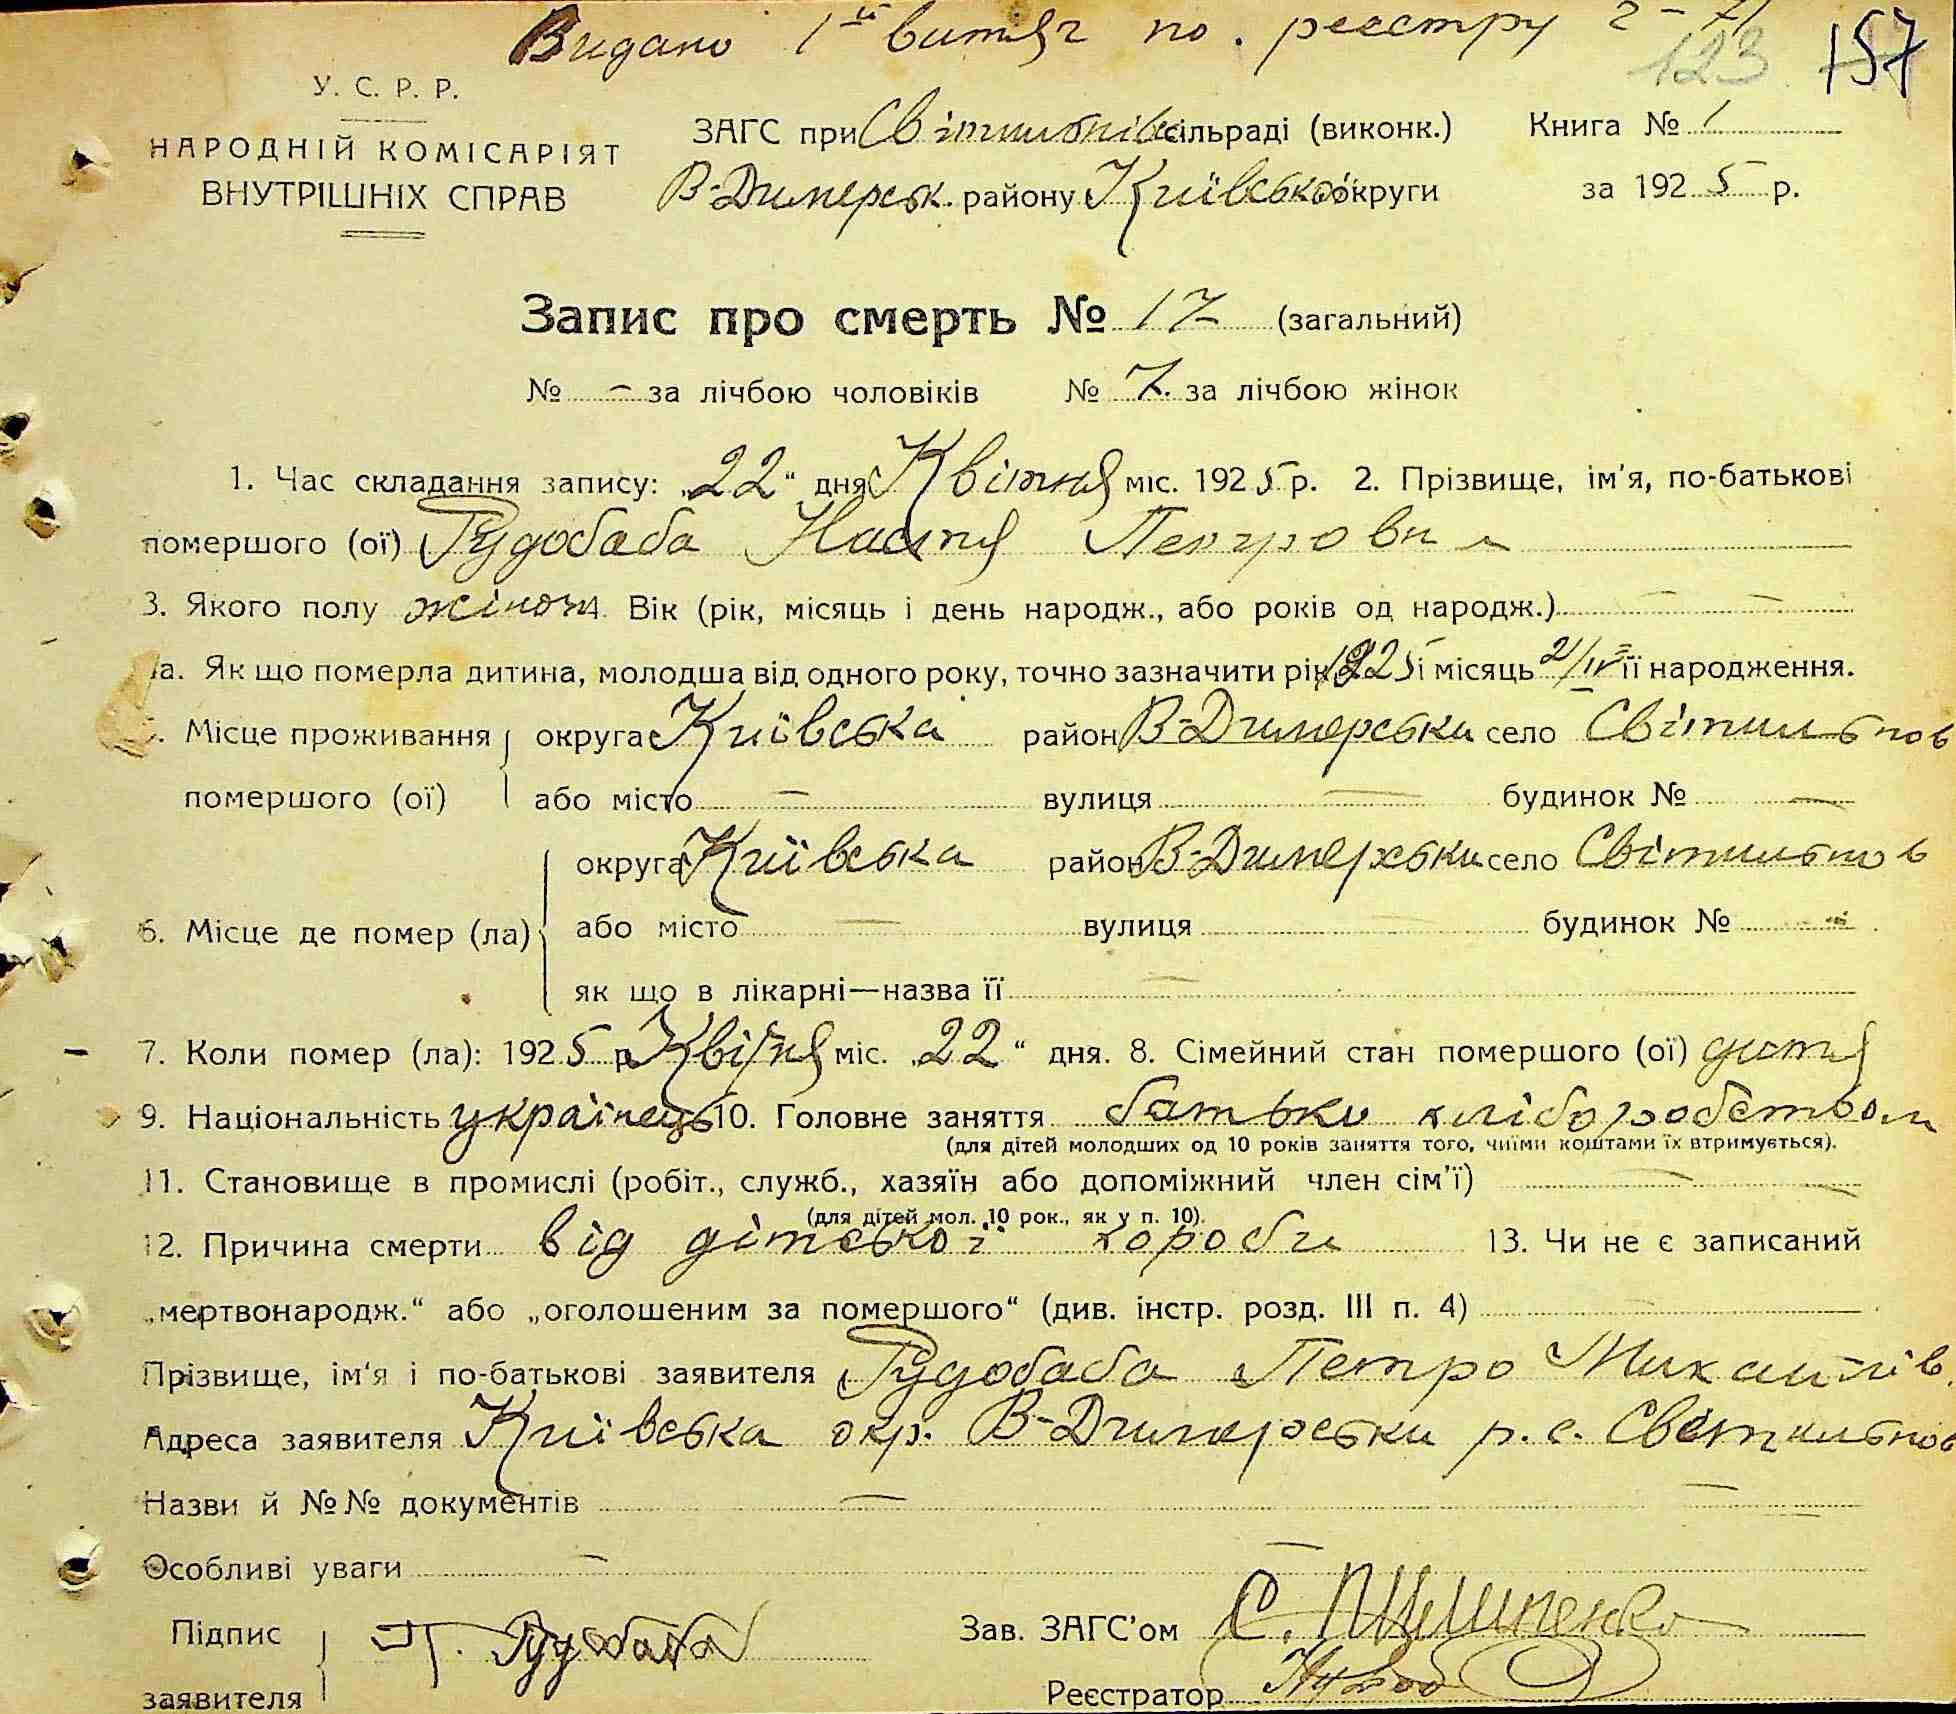 Видано 1ий витяг по. реєстру 2-71
123 157
У. С. Р. Р.
НАРОДНІЙ КОМІСАРІЯТ
ВНУТРІШНІХ СПРАВ
ЗАГС при Світильнів сільраді (виконк.) Книга № 1
В-Димерськ. району Київської округи за 1925 р.
Запис про смерть № 17 (загальний)
№ - за лічбою чоловіків № 7. за лічбою жінок
1. Час складання запису: „22“ дня Квітня міс. 1925 р. 2. Прізвище, ім'я, по-батькові
помершого (ої) Рудобаба Настя Петровн
3. Якого полу жіночи. Вік (рік, місяць і день народж., або років од народж.) — —
а. Як що померла дитина, молодша від одного року, точно зазначити рік 1925 і місяць 21/IV її народження.
Місце проживання округа Київська район В-Димерськи село Світильнов
помершого (ої) або місто — вулиця — будинок № —
6. Місце де помер (ла) округа Київська район В-Димерськи село Світильнов
або місто — вулиця — будинок №
як що в лікарні—назва її —
7. Коли помер (ла): 1925 р. Квітня міс. „22“ дня. 8. Сімейний стан помершого (ої) дитя
9. Національність українець 10. Головне заняття батьки хліборобством
(для дітей молодших од 10 років заняття того, чиїми коштами їх втримується).
11. Становище в промислі (робіт., служб., хазяїн або допоміжний член сім'ї) — —
(для дітей мол. 10 рок., як у п. 10).
12. Причина смерти від дітської хороби 13. Чи не є записаний
„мертвонародж.“ або „оголошеним за помершого“ (див. інстр. розд. III п. 4) —
Прізвище, ім'я і по-батькові заявителя Рудобаба Петро Михайлів.
Адреса заявителя Київська окр. В-Димерськи р. с. Світильнов
Назви й №№ документів — —
Особливі уваги — —
Підпис
заявителя П. Рудобаба
Зав. ЗАГС'ом
Реєстратор